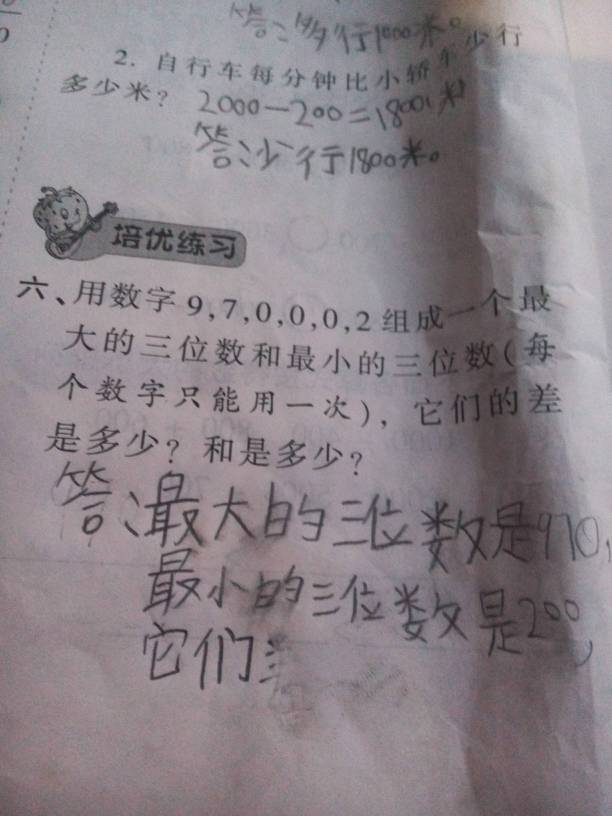 答:多行1000米。
2. 自行车每分钟比小轿车少行
多少米? 2000-200=1800(米)
答:少行1800米。
培优练习
六、用数字9,7,0,0,0,2组成一个最
大的三位数和最小的三位数(每
个数字只能用一次),它们的差
是多少?和是多少?
答:最大的三位数是970,
最小的三位数是200,
它们